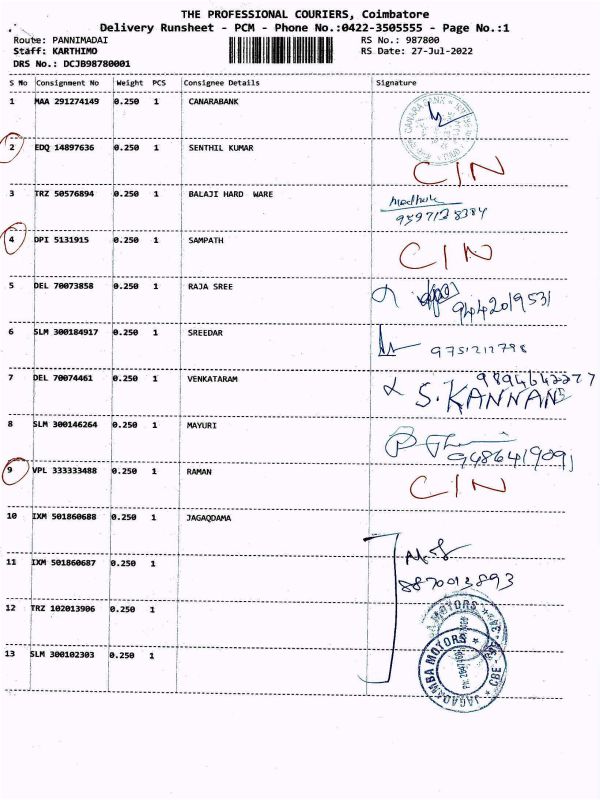 THE PROFESSIONAL COURIERS, Coimbatore
Delivery Runsheet - PCM - Phone No.:0422-3505555 - Page No.:1
Route: PANNIMADAI RS No.: 987800
Staff: KARTHIMO RS Date: 27-Jul-2022
DRS No.: DCJB98780001
S No Consignment No Weight PCS Consignee Details Signature
1 MAA 291274149 0.250 1 CANARABANK CANARA BANK
2 EDQ 14897636 0.250 1 SENTHIL KUMAR CIN
3 TRZ 50576894 0.250 1 BALAJI HARD WARE
9597128384
4 DPI 5131915 0.250 1 SAMPATH CIN
5 DEL 70073858 0.250 1 RAJA SREE 9442019531
6 SLM 300184917 0.250 1 SREEDAR 9751212798
7 DEL 70074461 0.250 1 VENKATARAM 9894642277
S. KANNAN
8 SLM 300146264 0.250 1 MAYURI
9486419091
9 VPL 333333488 0.250 1 RAMAN CIN
10 IXM 501860688 0.250 1 JAGAQDAMA
11 IXM 501860687 0.250 1
8870013893
12 TRZ 102013906 0.250 1
13 SLM 300102303 0.250 1
JAGADAMBA MOTORS * CBE - 3